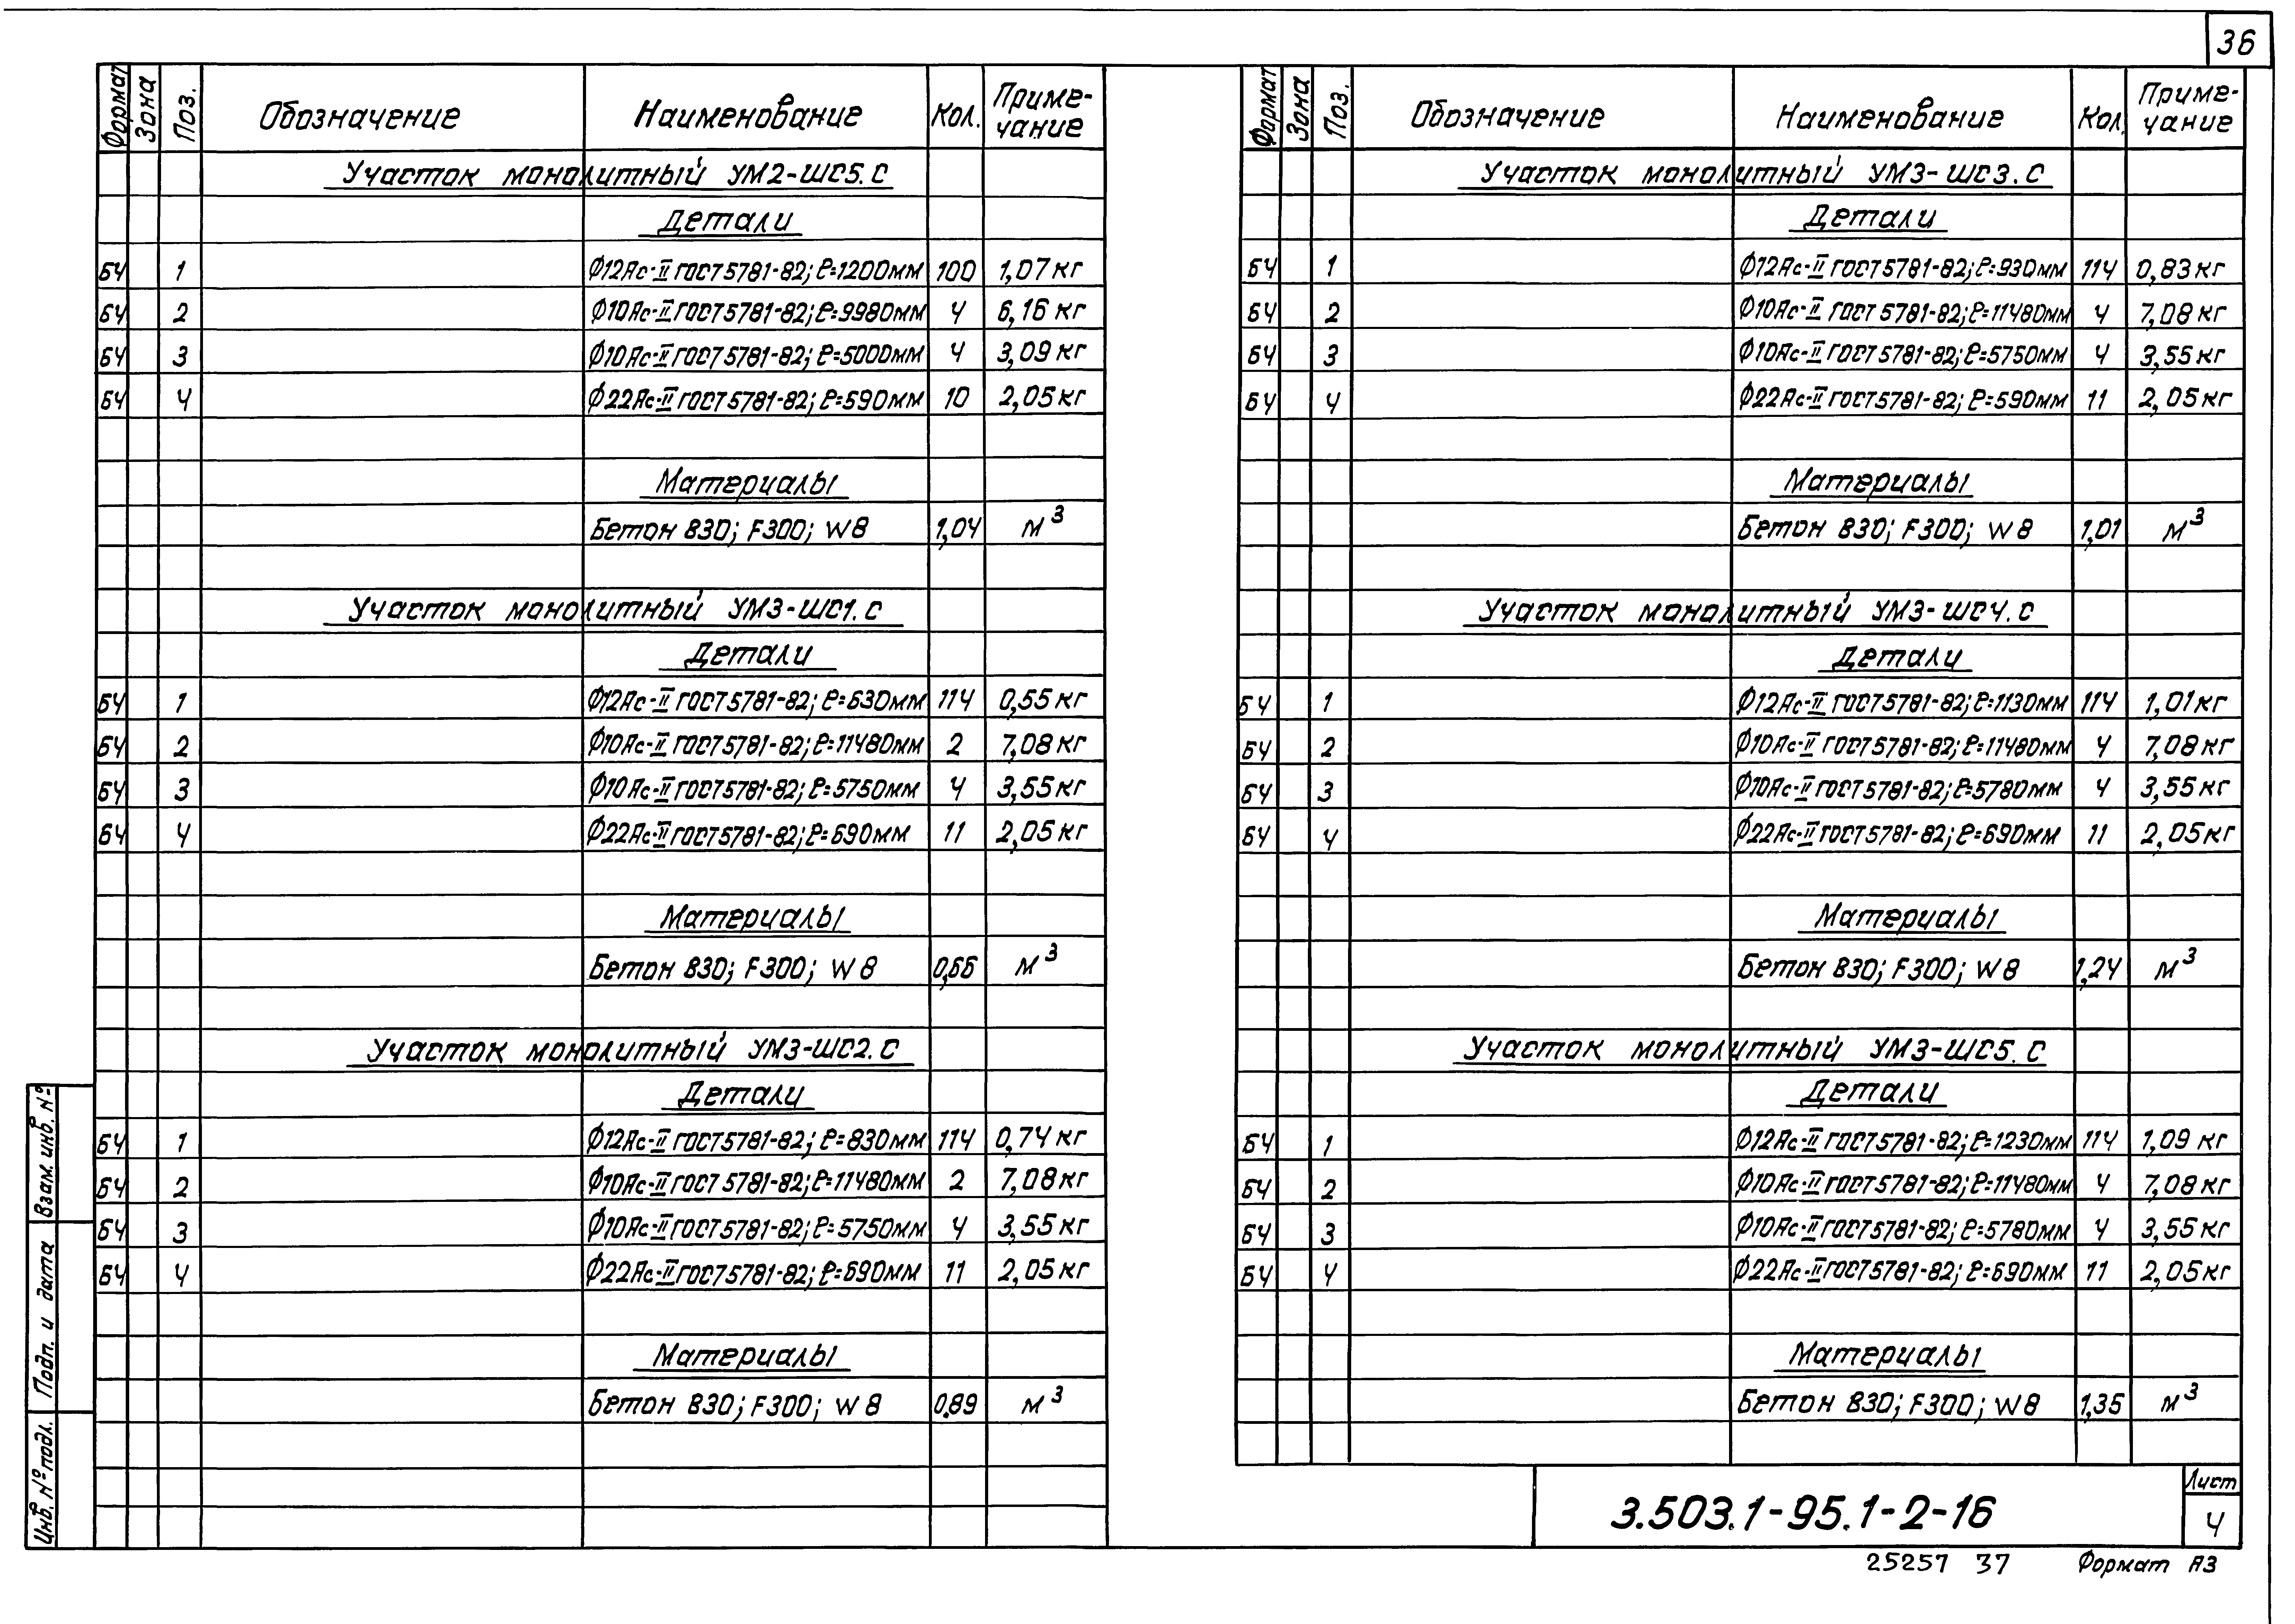 36
Формат Зона Поз. Обозначение Наименование Кол. Приме-
чание
Участок монолитный УМ2-ШС5.С
Детали
БЧ 1 Ф12Ас-II ГОСТ 5781-82; ℓ=1200мм 100 1,07кг
БЧ 2 Ф10Ас-II ГОСТ 5781-82; ℓ=9980мм 4 6,16кг
БЧ 3 Ф10Ас-II ГОСТ 5781-82; ℓ=5000мм 4 3,09кг
БЧ 4 Ф22Ас-II ГОСТ 5781-82; ℓ=590мм 10 2,05кг
Материалы
Бетон В30; F300; W8 1,04 м³
Участок монолитный УМ3-ШС1.С
Детали
БЧ 1 Ф12Ас-II ГОСТ 5781-82; ℓ=630мм 114 0,55кг
БЧ 2 Ф10Ас-II ГОСТ 5781-82; ℓ=11480мм 2 7,08кг
БЧ 3 Ф10Ас-II ГОСТ 5781-82; ℓ=5750мм 4 3,55кг
БЧ 4 Ф22Ас-II ГОСТ 5781-82; ℓ=690мм 11 2,05кг
Материалы
Бетон В30; F300; W8 0,66 м³
Участок монолитный УМ3-ШС2.С
Детали
БЧ 1 Ф12Ас-II ГОСТ 5781-82; ℓ=830мм 114 0,74кг
БЧ 2 Ф10Ас-II ГОСТ 5781-82; ℓ=11480мм 2 7,08кг
БЧ 3 Ф10Ас-II ГОСТ 5781-82; ℓ=5750мм 4 3,55кг
БЧ 4 Ф22Ас-II ГОСТ 5781-82; ℓ=690мм 11 2,05кг
Материалы
Бетон В30; F300; W8 0,89 м³
Формат Зона Поз. Обозначение Наименование Кол. Приме-
чание
Участок монолитный УМ3-ШС3.С
Детали
БЧ 1 Ф12Ас-II ГОСТ 5781-82; ℓ=930мм 114 0,83кг
БЧ 2 Ф10Ас-II ГОСТ 5781-82; ℓ=11480мм 4 7,08кг
БЧ 3 Ф10Ас-II ГОСТ 5781-82; ℓ=5750мм 4 3,55кг
БЧ 4 Ф22Ас-II ГОСТ 5781-82; ℓ=590мм 11 2,05кг
Материалы
Бетон В30; F300; W8 1,01 м³
Участок монолитный УМ3-ШС4.С
Детали
БЧ 1 Ф12Ас-II ГОСТ 5781-82; ℓ=1130мм 114 1,01кг
БЧ 2 Ф10Ас-II ГОСТ 5781-82; ℓ=11480мм 4 7,08кг
БЧ 3 Ф10Ас-II ГОСТ 5781-82; ℓ=5780мм 4 3,55кг
БЧ 4 Ф22Ас-II ГОСТ 5781-82; ℓ=690мм 11 2,05кг
Материалы
Бетон В30; F300; W8 1,24 м³
Участок монолитный УМ3-ШС5.С
Детали
БЧ 1 Ф12Ас-II ГОСТ 5781-82; ℓ=1230мм 114 1,09кг
БЧ 2 Ф10Ас-II ГОСТ 5781-82; ℓ=11480мм 4 7,08кг
БЧ 3 Ф10Ас-II ГОСТ 5781-82; ℓ=5780мм 4 3,55кг
БЧ 4 Ф22Ас-II ГОСТ 5781-82; ℓ=690мм 11 2,05кг
Материалы
Бетон В30; F300; W8 1,35 м³
Взам. инв. №
Подп. и дата
Инв. № подл.
3.503.1-95.1-2-16
Лист
4
25257 37 Формат А3